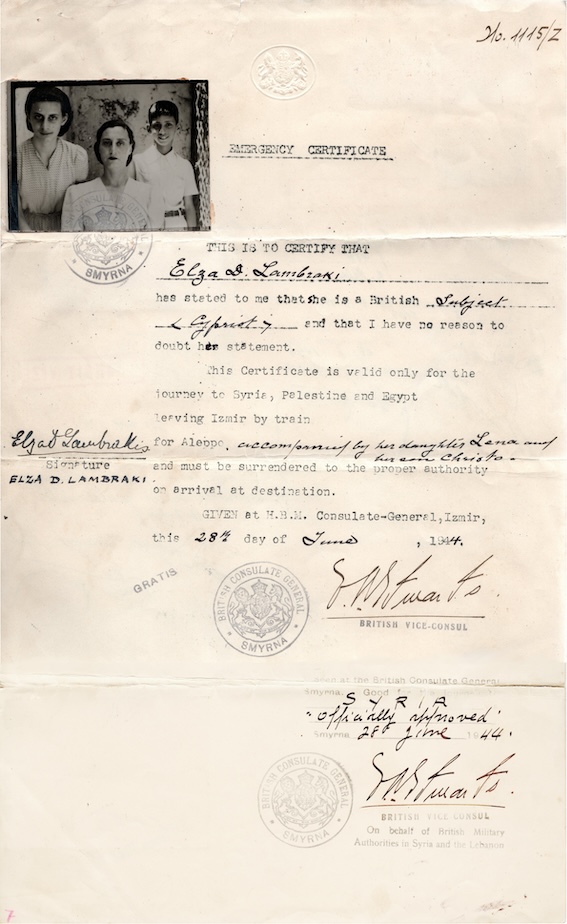 No. 1115/Z
EMERGENCY CERTIFICATE
CONSULATE
SMYRNA
THIS IS TO CERTIFY THAT
Elza D. Lambraki
has stated to me that she is a British Subject
& Cypriot, and that I have no reason to
doubt her statement.
This Certificate is valid only for the
journey to Syria, Palestine and Egypt
leaving Izmir by train
for Aleppo, accompanied by her daughter Lena and
her son Christo.
Elza D Lambrakis
Signature
ELZA D. LAMBRAKI.
and must be surrendered to the proper authority
on arrival at destination.
GIVEN at H.B.M. Consulate-General, Izmir,
this 28th day of June, 1944.
GRATIS
BRITISH CONSULATE GENERAL
SMYRNA
BRITISH VICE-CONSUL
at the British Consulate General
Smyrna. Good for
SYRIA
"Officially approved"
Smyrna 28th June 1944.
BRITISH CONSULATE GENERAL
SMYRNA
BRITISH VICE-CONSUL
On behalf of British Military
Authorities in Syria and the Lebanon